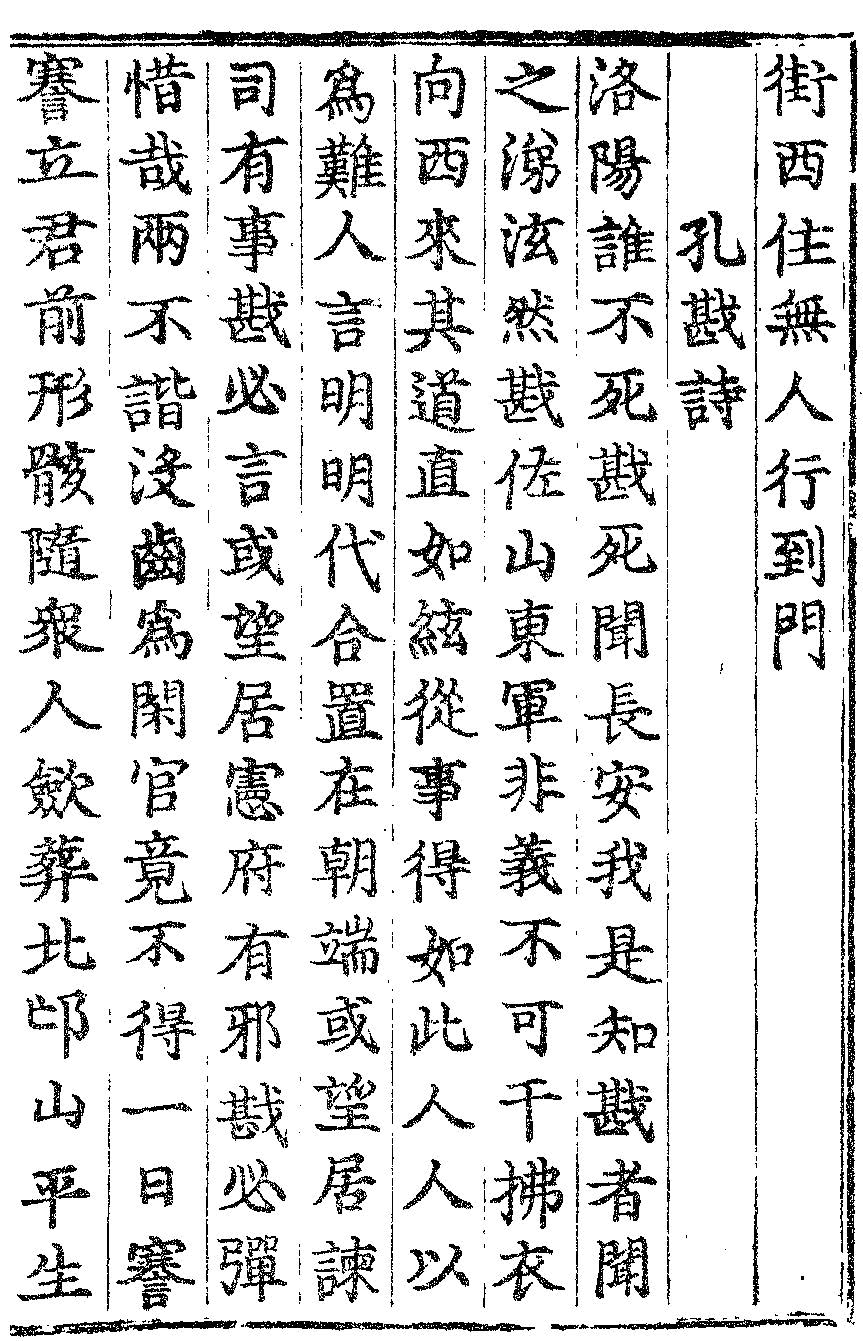 街西住無人行到門
孔戡詩
洛陽誰不死戡死聞長安我是知戡者聞
之涕泫然戡佐山東軍非義不可干拂衣
向西來其道直如絃從事得如此人人以
爲難人言明明代合置在朝端或望居諫
司有事戡必言或望居憲府有邪戡必彈
惜哉兩不諧沒齒爲閑官竟不得一日謇
謇立君前形骸隨衆人歛葬北邙山平生